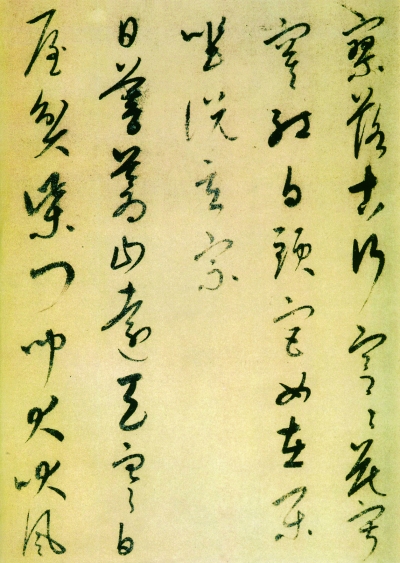 寥落古行宮々花寂
寞紅白頭宮女在閑
坐說玄宗
日暮蒼山遠天寒白
屋貧柴門聞犬吠風